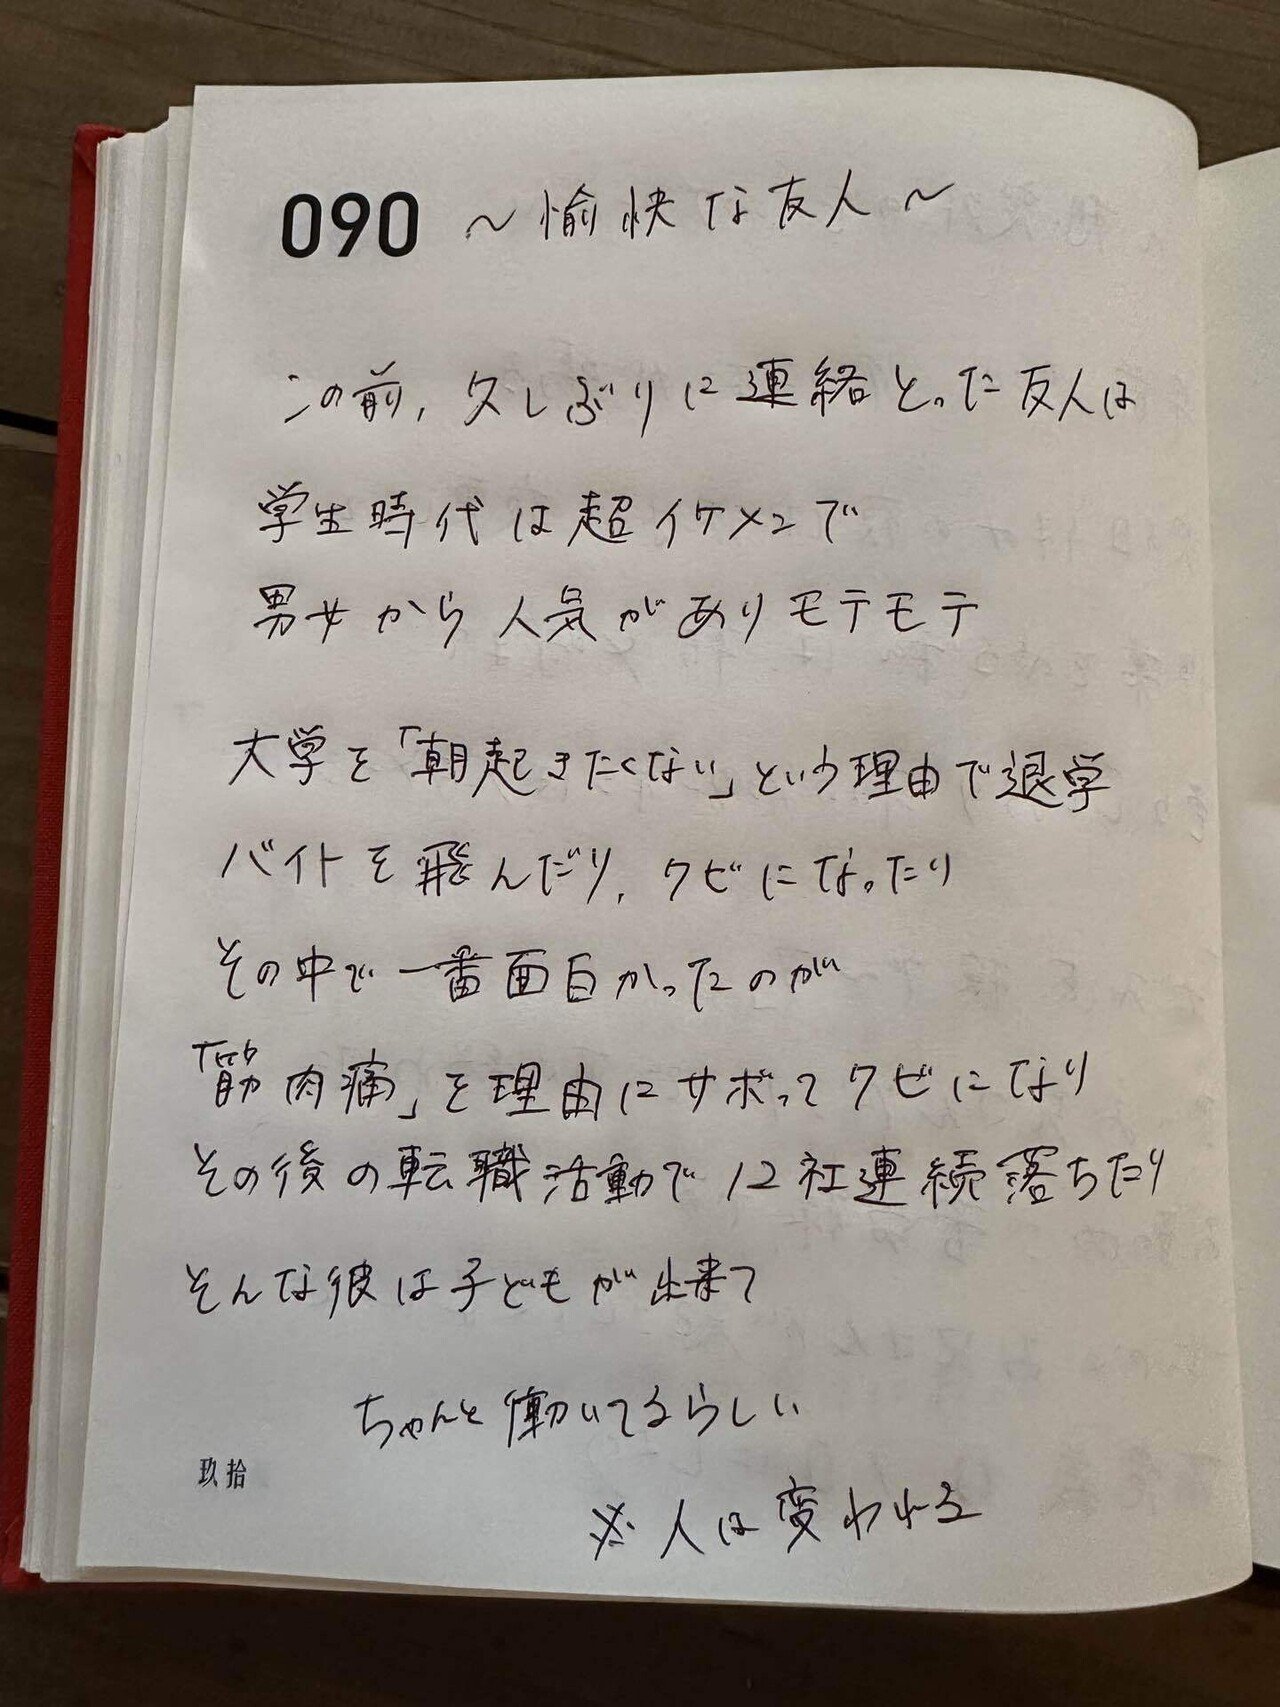 090 ～愉快な友人～
この前、久しぶりに連絡とった友人は
学生時代は超イケメンで
男女から人気がありモテモテ
大学を「朝起きたくない」という理由で退学
バイトを飛んだり、クビになったり
その中で一番面白かったのが
「筋肉痛」を理由にサボってクビになり
その後の転職活動で12社連続落ちたり
そんな彼は子どもが出来て
ちゃんと働いてるらしい
玖拾
※人は変われる